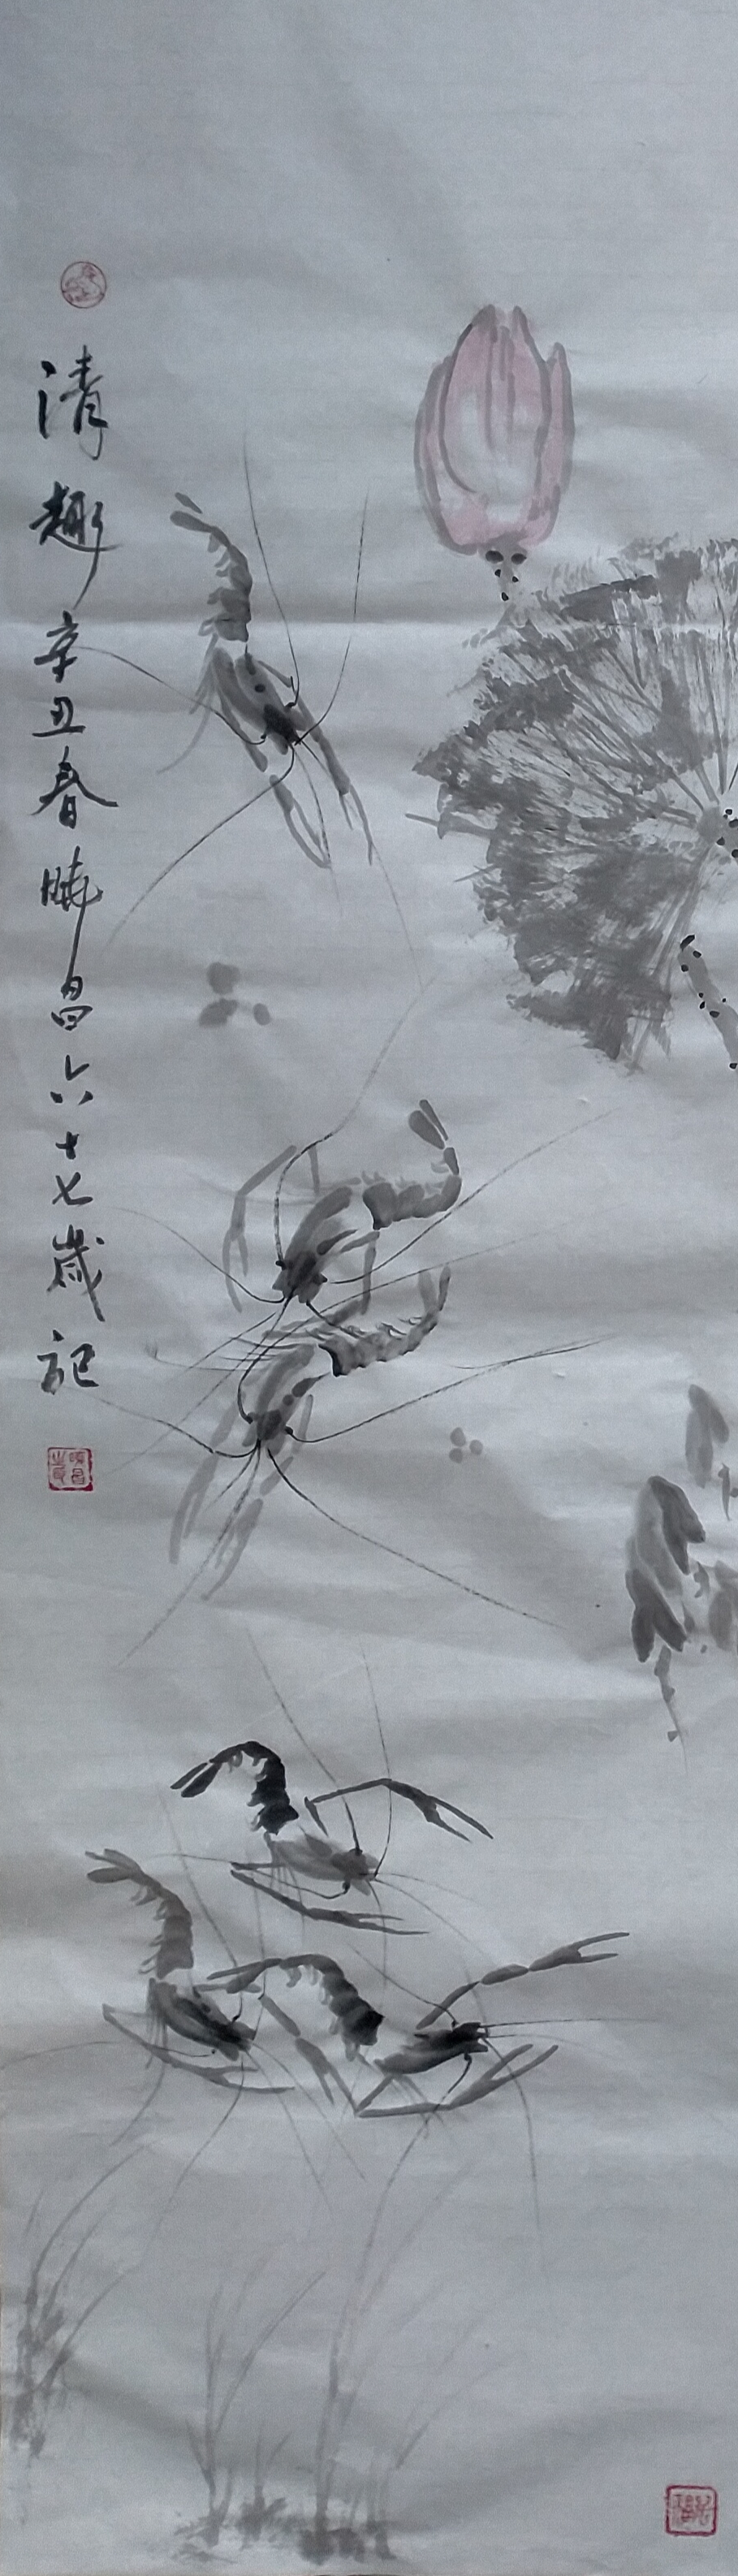 清趣辛丑春晓昌六十七岁記